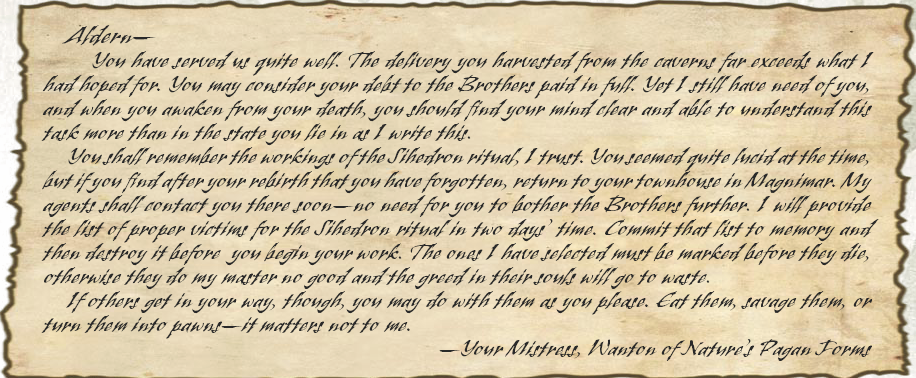 Aldern—
You have served us quite well. The delivery you harvested from the caverns far exceeds what I
had hoped for. You may consider your debt to the Brothers paid in full. Yet I still have need of you,
and when you awaken from your death, you should find your mind clear and able to understand this
task more than in the state you lie in as I write this.
You shall remember the workings of the Sihedron ritual, I trust. You seemed quite lucid at the time,
but if you find after your rebirth that you have forgotten, return to your townhouse in Magnimar. My
agents shall contact you there soon—no need for you to bother the Brothers further. I will provide
the list of proper victims for the Sihedron ritual in two days' time. Commit that list to memory and
then destroy it before you begin your work. The ones I have selected must be marked before they die,
otherwise they do my master no good and the greed in their souls will go to waste.
If others get in your way, though, you may do with them as you please. Eat them, savage them, or
turn them into pawns—it matters not to me.
—Your Mistress, Wanton of Nature's Pagan Forms